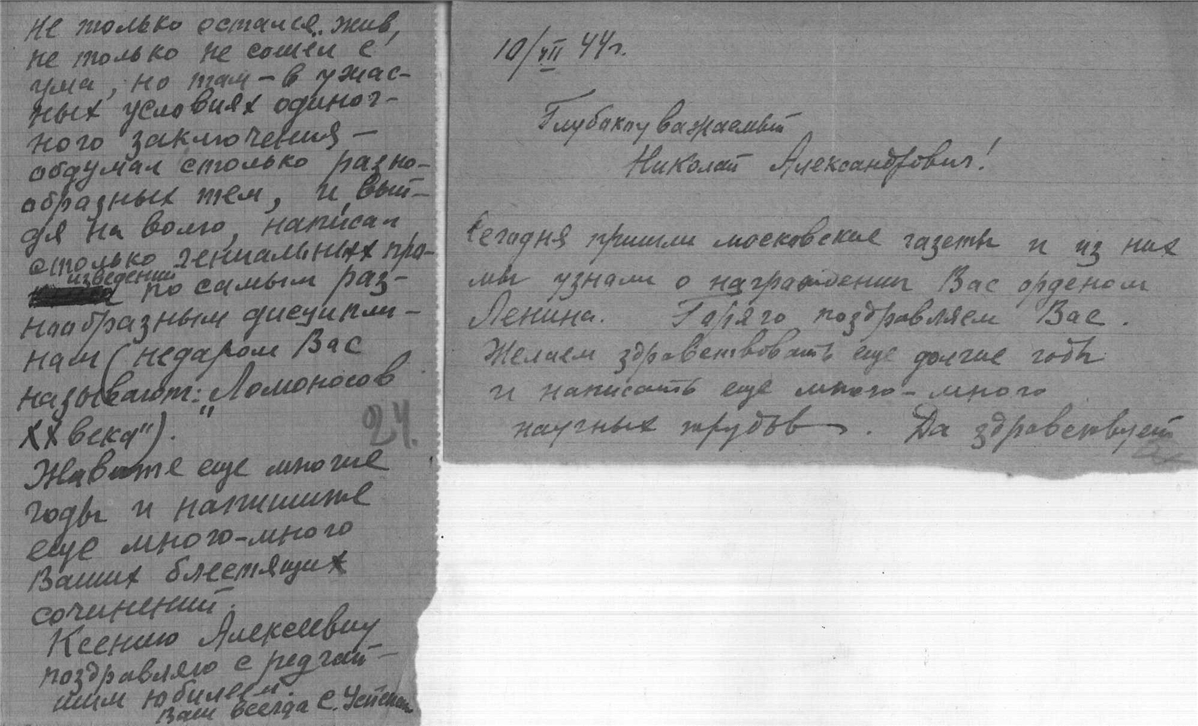 не только остался жив,
не только не сошел с
ума, но там – в ужас-
ных условиях одиноч-
ного заключения –
обдумал столько разно-
образных тем, и, вый-
дя на волю, написал
столько гениальных про-
изведений
по самым раз-
нообразным дисципли-
нам (недаром Вас
называют: „Ломоносов
XX века").
24.
Живите еще многие
годы и напишите
еще много-много
Ваших блестящих
сочинений.
Ксению Алексеевну
поздравляю с редчай-
шим юбилеем.
Ваш всегда С.
10/VII 44 г.
Глубокоуважаемый
Николай Александрович!
Сегодня пришли московские газеты и из них
мы узнали о награждении Вас орденом
Ленина. Горячо поздравляем Вас.
Желаем здравствовать еще долгие годы
и написать еще много-много
научных трудов. Да здравствует